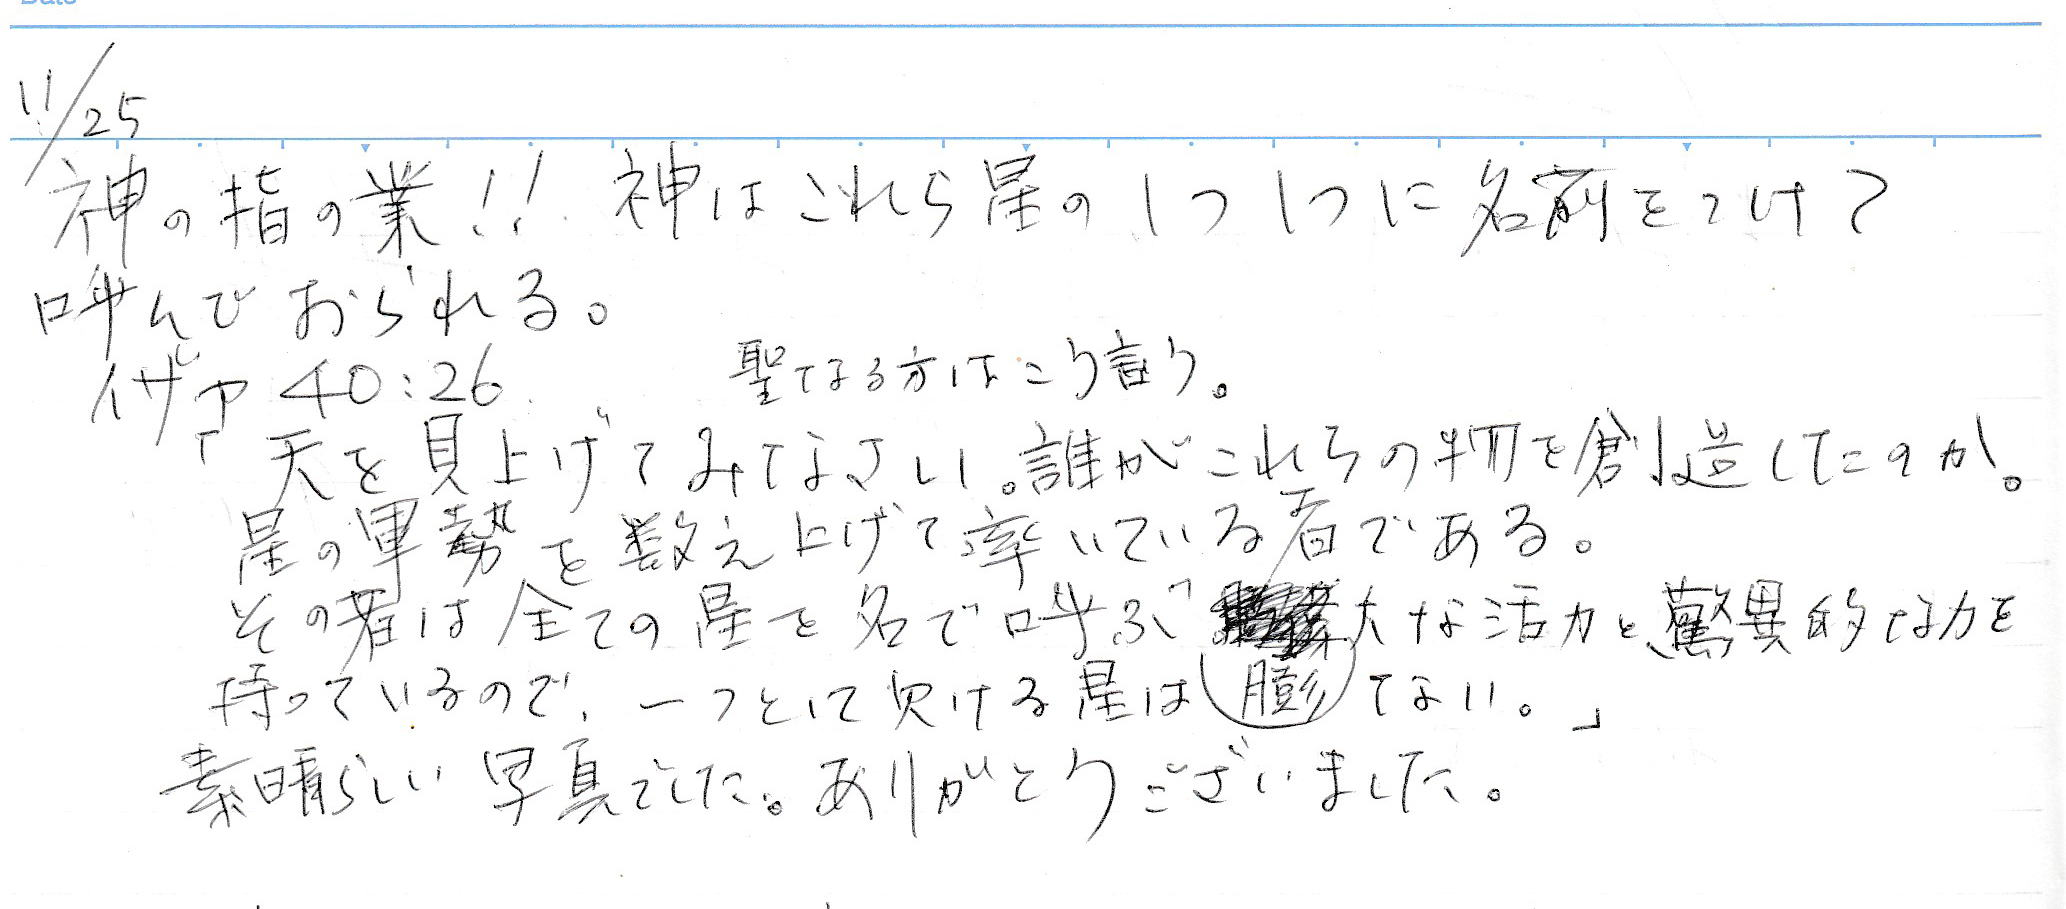 11/25
神の指の業!! 神はこれら星の1つ1つに名前をつけて
呼んでおられる。
イザヤ 40:26 聖なる方はこう言う。
「天を見上げてみなさい。誰がこれらの物を創造したのか。
星の軍勢を数え上げて率いている者である。
その者は全ての星を名で呼ぶ 大な活力と、驚異的な力を
持っているので、一つとして欠ける星は 膨 てない。」
素晴らしい写真でした。ありがとうございました。